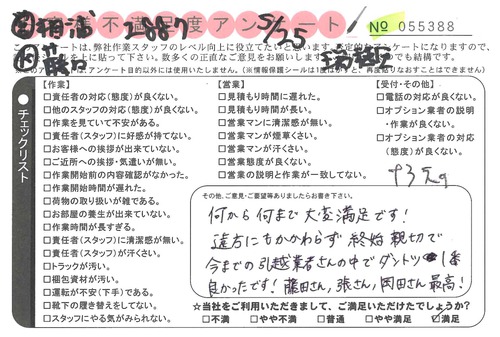 不満足度アンケート
2887
5/25
№ 055388
このアンケートは、弊社作業スタッフのレベル向上に役立てたいと思います。否定的なアンケートになりますので、
チェックリスト
【作業】
□責任者の対応(態度)が良くない。
□他のスタッフの対応(態度)が良くない。
□作業を見ていて不安がある。
□責任者(スタッフ)に好感が持てない。
□お客様への挨拶が出来ていない。
□ご近所への挨拶・気遣いが無い。
□作業開始前の内容確認がなかった。
□作業開始時間が遅れた。
□荷物の取り扱いが雑である。
□お部屋の養生が出来ていない。
□作業時間が長すぎる。
□責任者(スタッフ)に清潔感が無い。
□責任者(スタッフ)が汗くさい。
□トラックが汚い。
□梱包資材が汚い。
□運転が不安(下手)である。
□靴下の履き替えをしてない。
□スタッフにやる気がみられない。
【営業】
□見積もり時間に遅れた。
□見積もり時間が長い。
□営業マンに清潔感が無い。
□営業マンが煙草くさい。
□営業マンが汗くさい。
□営業態度が良くない。
□営業の説明と作業が一致してない。
【受付・その他】
□電話の対応が良くない。
□オプション業者の説明
・作業が良くない。
□オプション業者の対応
(態度)が良くない。
その他、ご意見・ご要望等ありましたらお書き下さい。
何から何まで大変満足です!
遠方にもかかわらず終始親切で
今までの引越業者さんの中でダントツ1番
良かったです!藤田さん、張さん、岡田さん最高!
☆当社をご利用いただきまして、ご満足いただけたでしょうか?
□不満 □やや不満 □普通 □やや満足 ☑満足